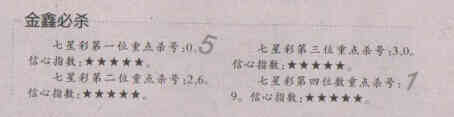 金鑫必杀
七星彩第一位重点杀号:0、5
信心指数:★★★★★。
七星彩第二位重点杀号:2、6。
信心指数:★★★★★。
七星彩第三位重点杀号:3、0。
信心指数:★★★★★。
七星彩第四位数重点杀号:1
9。信心指数:★★★★★。